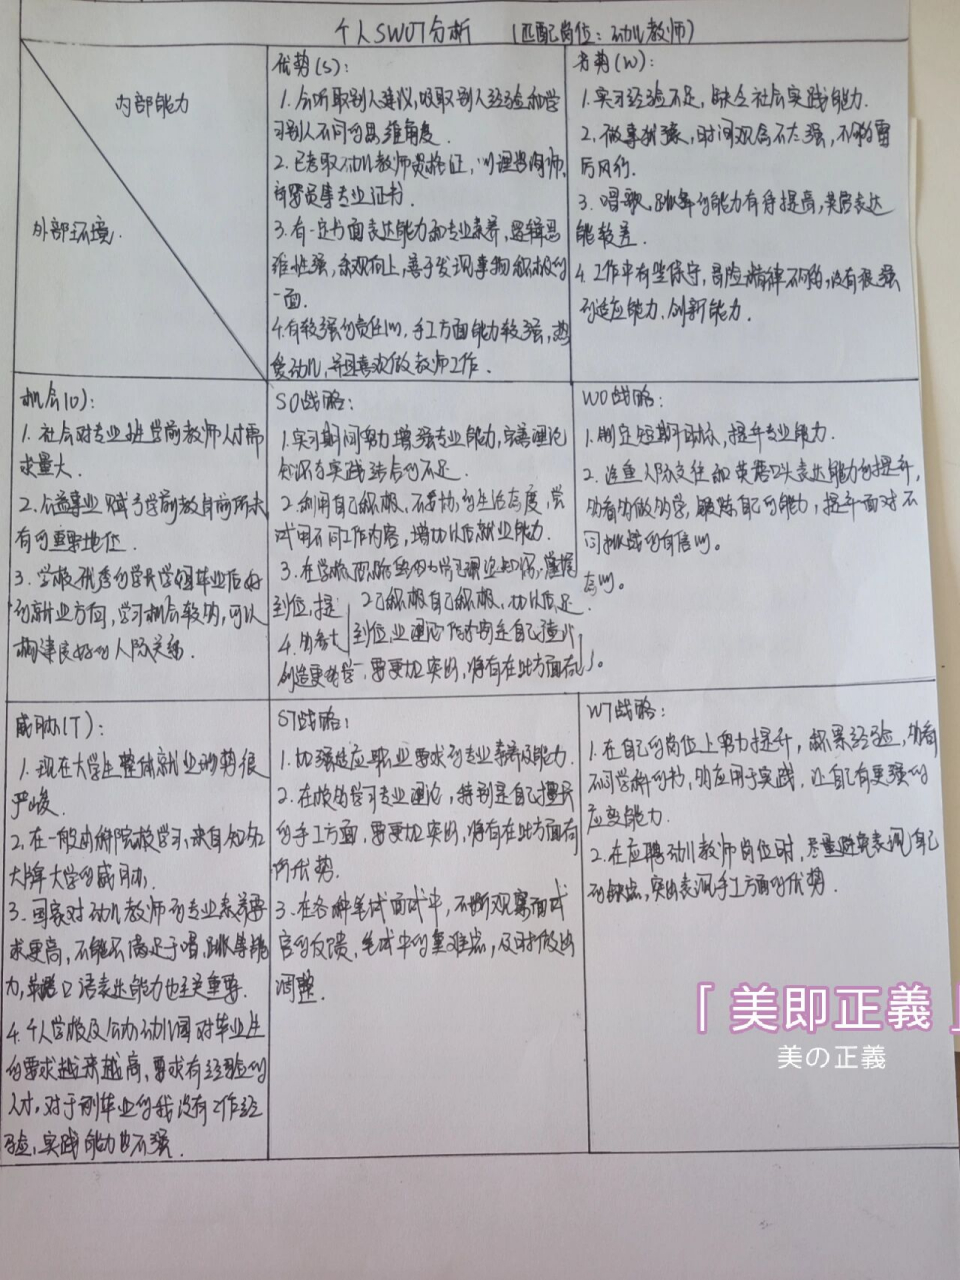 个人SWOT分析 (匹配岗位：幼儿教师)
内部能力
外部环境.
优势(S)：
1. 会听取别人建议,吸取别人经验和学
习别人不同的思维角度.
2. 已考取幼儿教师资格证,心理咨询师,
育婴员等专业证书.
3. 有一定书面表达能力和专业素养,逻辑思
维性强,乐观向上,善于发现事物积极的
一面.
4.有较强的责任心,手工方面能力较强,热
爱幼儿,并且喜欢做教师工作.
劣势(W)：
1.实习经验不足,缺乏社会实践能力.
2.做事,时间观念不太强,不够雷
厉风行.
3. 唱歌,跳舞的能力有待提高,英语表达
能较差.
4. 工作中有些保守,冒险精神不够,没有很强
的适应能力,创新能力.
机会(O)：
1. 社会对专业 学前教师人才需
求量大.
2.公益事业赋予学前教育前所未
有的重要地位.
3. 学校优秀的学长学姐毕业后好
的就业方向,学习机会较多,可以
构建良好的人际关系.
SO战略：
1.实习期间努力增强专业能力,完善理论
知识与实践结合的不足.
2.利用自己积极,不妥协,的生活态度,尝
试用不同工作内容,增加以后就业能力.
3. 在学校
到位,
2己积极自己积极、
4.
到位,业理论
创造更,要更加突出,将有在此方面有
WO战略：
1.制定短期计划,提升专业能力.
2. 注重人际交往和英语口头表达能力的提升,
多看多做多学,锻炼自己的能力,提升面对不
同挑战的自信心。
心。
威胁(T)：
1. 现在大学生整体就业形势很
严峻.
2. 在一般的师院校学习,来自知名
大牌大学的威胁.
3. 国家对幼儿教师的专业素养要
求更高,不能只满足于唱,跳等能
力,英语口语表达能力也至关重要.
4.个人学校及公办幼儿园对毕业生
的要求越来越高,要求有经验的
人才,对于刚毕业的我没有工作经
验,实践能力也不强.
ST战略：
1.加强适应职业要求的专业素养及能力.
2. 在校多学习专业理论,特别是自己擅长
的手工方面,要更加突出,将有在此方面有
所优势.
3. 在各种笔试面试中,不断观察面试
官的反馈,笔试中的重难点,及时做出
调整.
WT战略：
1.在自己的岗位上努力提升,积累经验,多看
不同学科的书,多应用于实践,让自己有更强的
应变能力.
2.在应聘幼儿教师岗位时,尽量避免表现自己
的缺点,突出表现手工方面的优势.
「美即正義」
美の正義